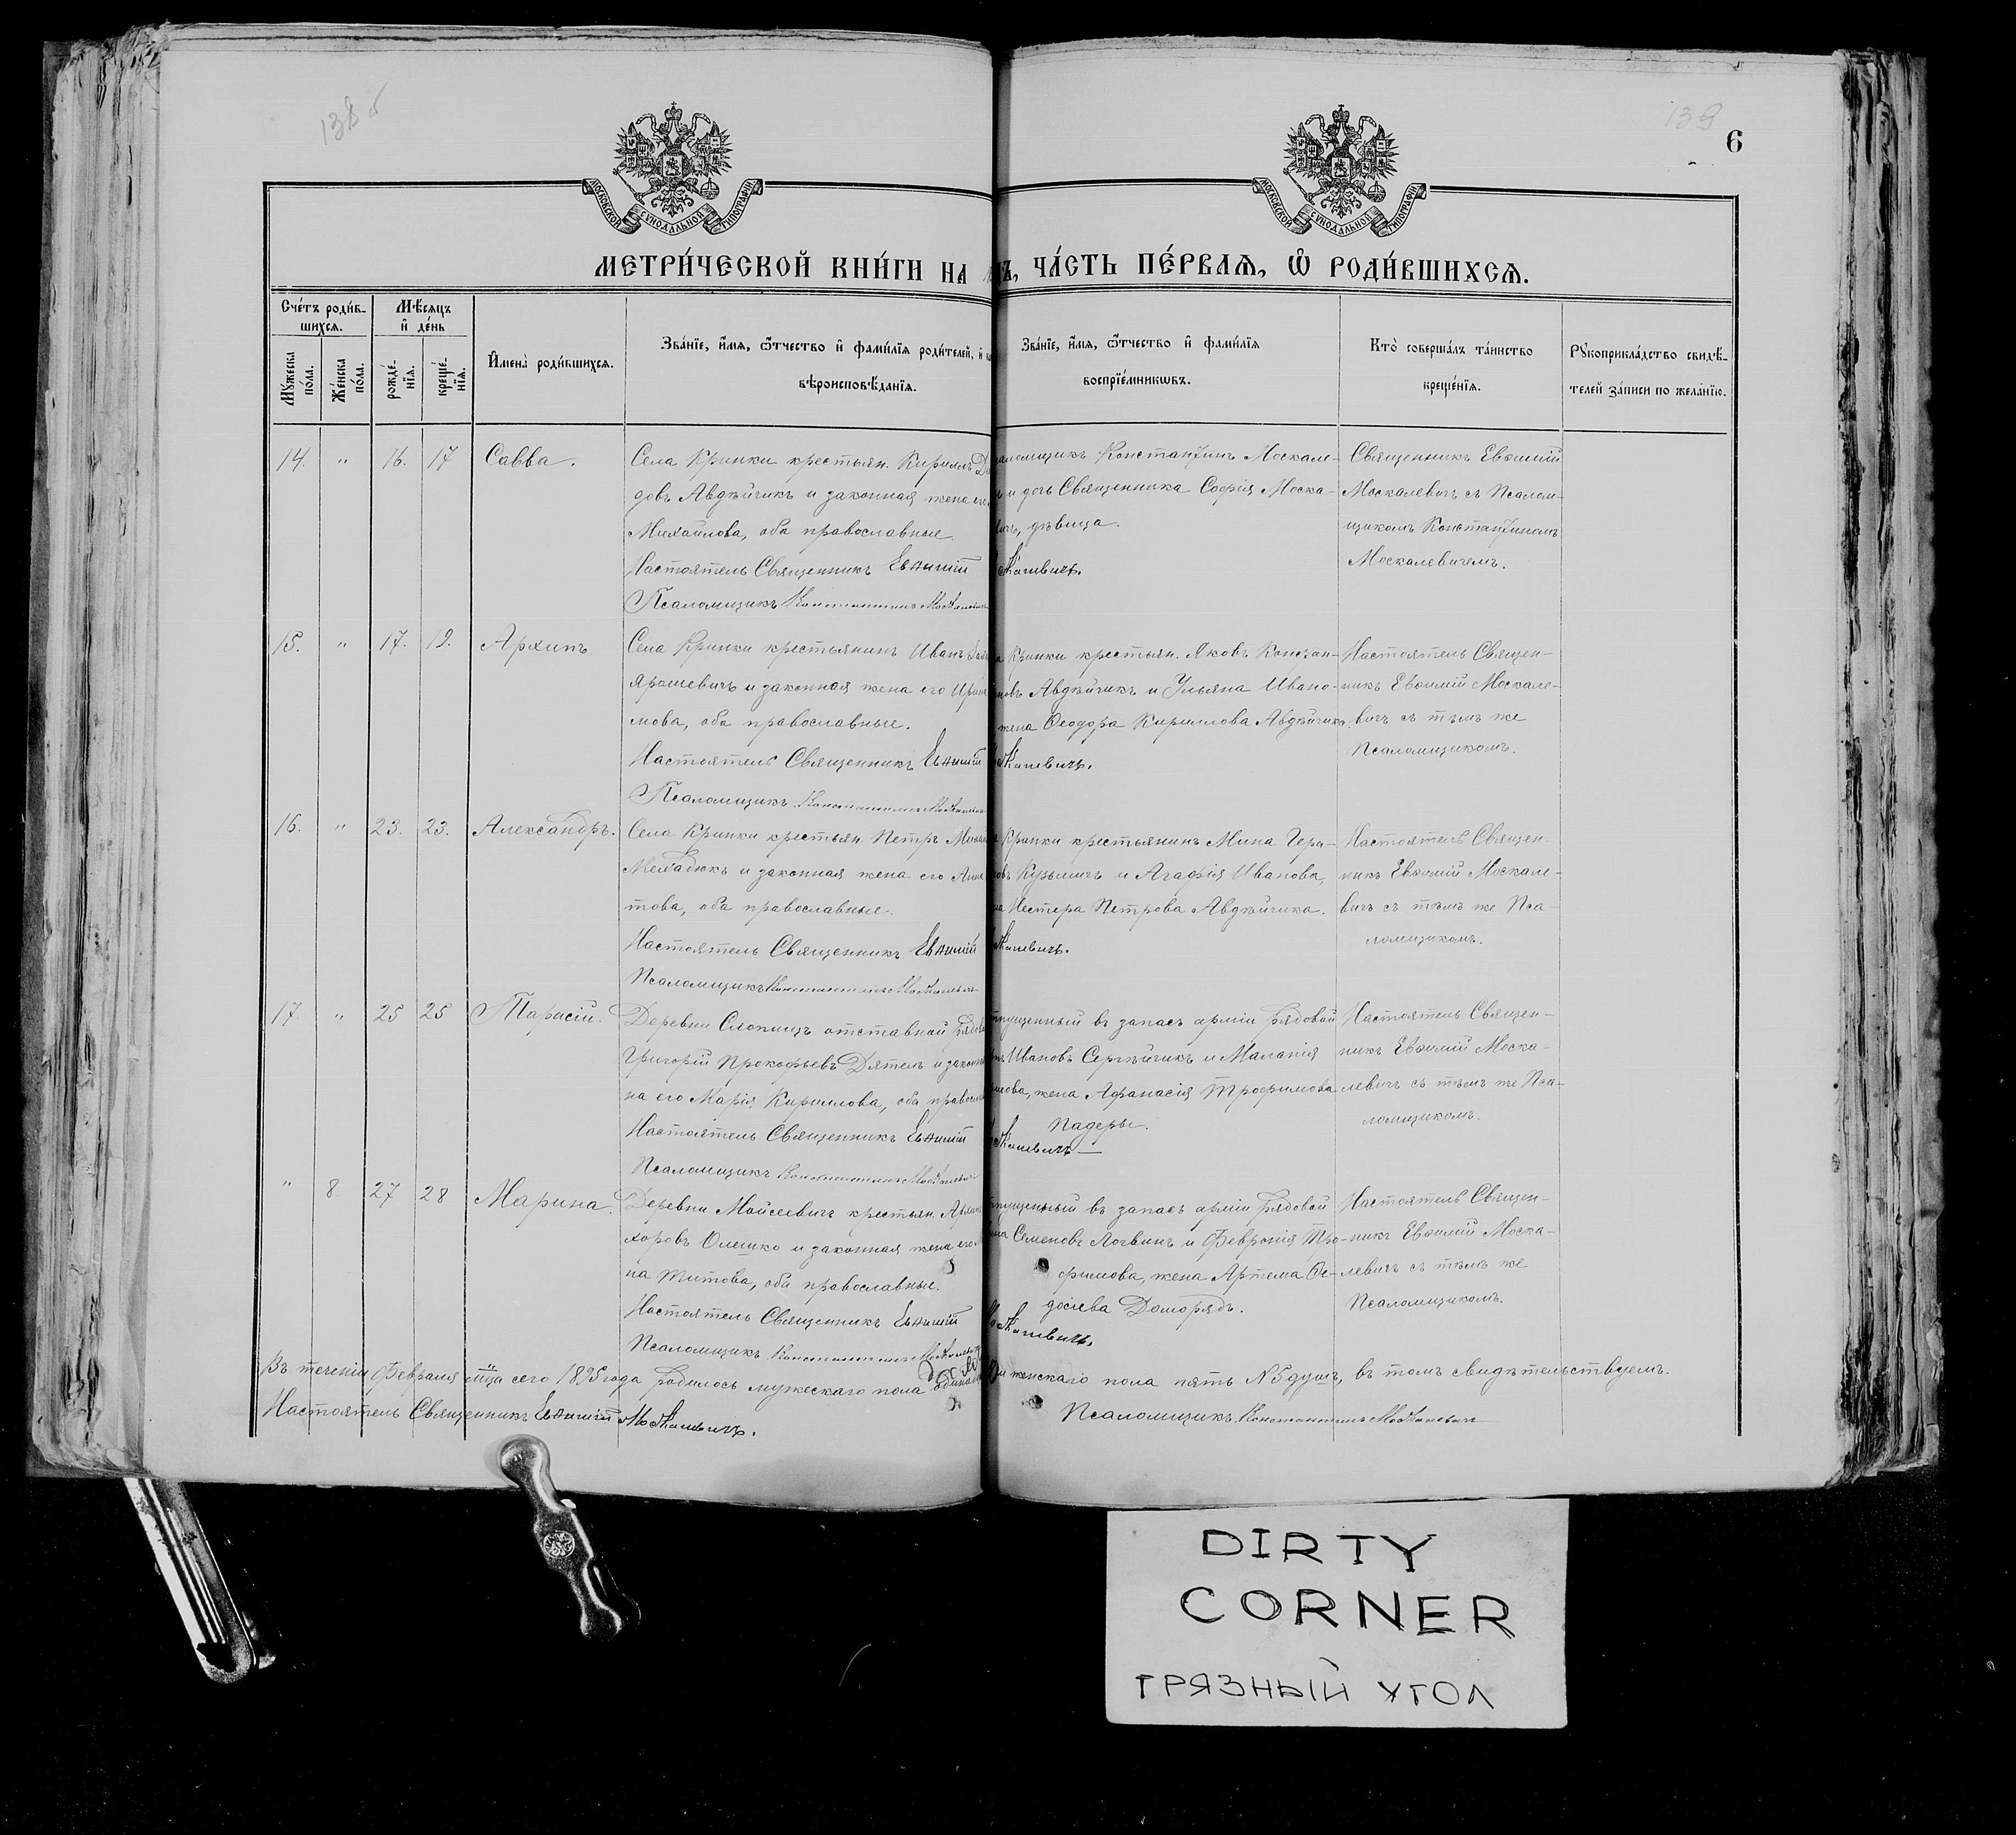 138б
139
6
МОСКОВСКОЙ СѴНОДАЛЬНОЙ ТИПОГРАФІИ
МОСКОВСКОЙ СѴНОДАЛЬНОЙ ТИПОГРАФІИ
МЕТРИ́ЧЕСКОЙ КНИ́ГИ НА
ЧА́СТЬ ПЕ́РВАѦ, Ѽ РОДИ́ВШИХСѦ.
Сче́тъ роди́в-
шихсѧ.
Мѣ́сѧцъ
и҆ де́нь
Мꙋ́жеска
по́ла.
Же́нска
по́ла.
рожде́-
нїѧ.
креще́-
нїѧ.
И҆мена̀ роди́вшихсѧ.
Зва́нїе, и҆́мѧ, ѻ҆́тчество и҆ фами́лїѧ роди́телей, и҆
вѣроисповѣ́данїѧ.
Зва́нїе, и҆́мѧ, ѻ҆́тчество и҆ фами́лїѧ
воспрїе́мникѡвъ.
Кто̀ соверша́лъ та́инство
креще́нїѧ.
Рꙋкоприкла́дство свидѣ́-
телей за́писи по жела́нїю.
14. " 16. 17 Савва.
Села Кринки крестьян. Кириллъ
довъ Авдѣйчикъ и законная жена его
Михайлова, оба православные
Настоятель Священникъ Евѳимій
Псаломщикъ Константинъ Москалевичъ
аломщикъ Константинъ Москале-
и дочь Священника Софія Моска-
дѣвица.
Священникъ Евѳимій
Москалевичъ съ Псалом-
щикомъ Константиномъ
Москалевичемъ.
15. " 17. 19. Архипъ
Села Кринки крестьянинъ Иванъ
Ярошевичъ и законная жена его Ирина
мова, оба православные.
Настоятель Священникъ Евѳимій
Псаломщикъ Константинъ Москалевичъ
Кринки крестьян. Яковъ Констан-
новъ Авдѣйчикъ и Ульяна Ивано-
жена Ѳеодора Кириллова Авдѣйчика.
Настоятель Священ-
никъ Евѳимій Москале-
вичъ съ тѣмъ же
Псаломщикомъ.
16. " 23. 23. Александръ.
Села Кринки крестьян. Петръ
и законная жена его Анна
това, оба православные.
Настоятель Священникъ Евѳимій
Псаломщикъ Константинъ Москалевичъ
Кринки крестьянинъ Мина Гера-
Кузьмичъ и Агафія Иванова,
Нестера Петрова Авдѣйчика.
Настоятель Священ-
никъ Евѳимій Москале-
вичъ съ тѣмъ же Пса-
ломщикомъ.
17 " 25 25 Тарасій.
Деревни Слопищъ отставной рядовой
Григорій Прокофьевъ Дятелъ и законная
на его Марія Кириллова, оба православные
Настоятель Священникъ Евѳимій
Псаломщикъ Константинъ Москалевичъ
пущенный въ запасъ арміи рядовой
Ивановъ Сергѣйчикъ и Маланія
жена Афанасія Трофимова
Падеры.
Настоятель Священ-
никъ Евѳимій Моска-
левичъ съ тѣмъ же Пса-
ломщикомъ.
" 8. 27 28 Марина.
Деревни Мойсеевичъ крестьян.
хоровъ Олешко и законная жена его
на Титова, оба православные.
Настоятель Священникъ Евѳимій
Псаломщикъ Константинъ Москалевичъ
пущенный въ запасъ арміи рядовой
Семеновъ Логвинъ и Февронія Тро-
фимова, жена Артема Ѳе-
досіева Доморядъ.
Настоятель Священ-
никъ Евѳимій Моска-
левичъ съ тѣмъ же
Псаломщикомъ.
Въ теченіи Февраля м-ца сего 1895 года родилось мужескаго пола
женскаго пола пять №5 душъ, въ томъ свидѣтельствуемъ.
Настоятель Священникъ Евѳимій Москалевичъ.
Псаломщикъ Константинъ Москалевичъ
DIRTY
CORNER
ГРЯЗНЫЙ УГОЛ